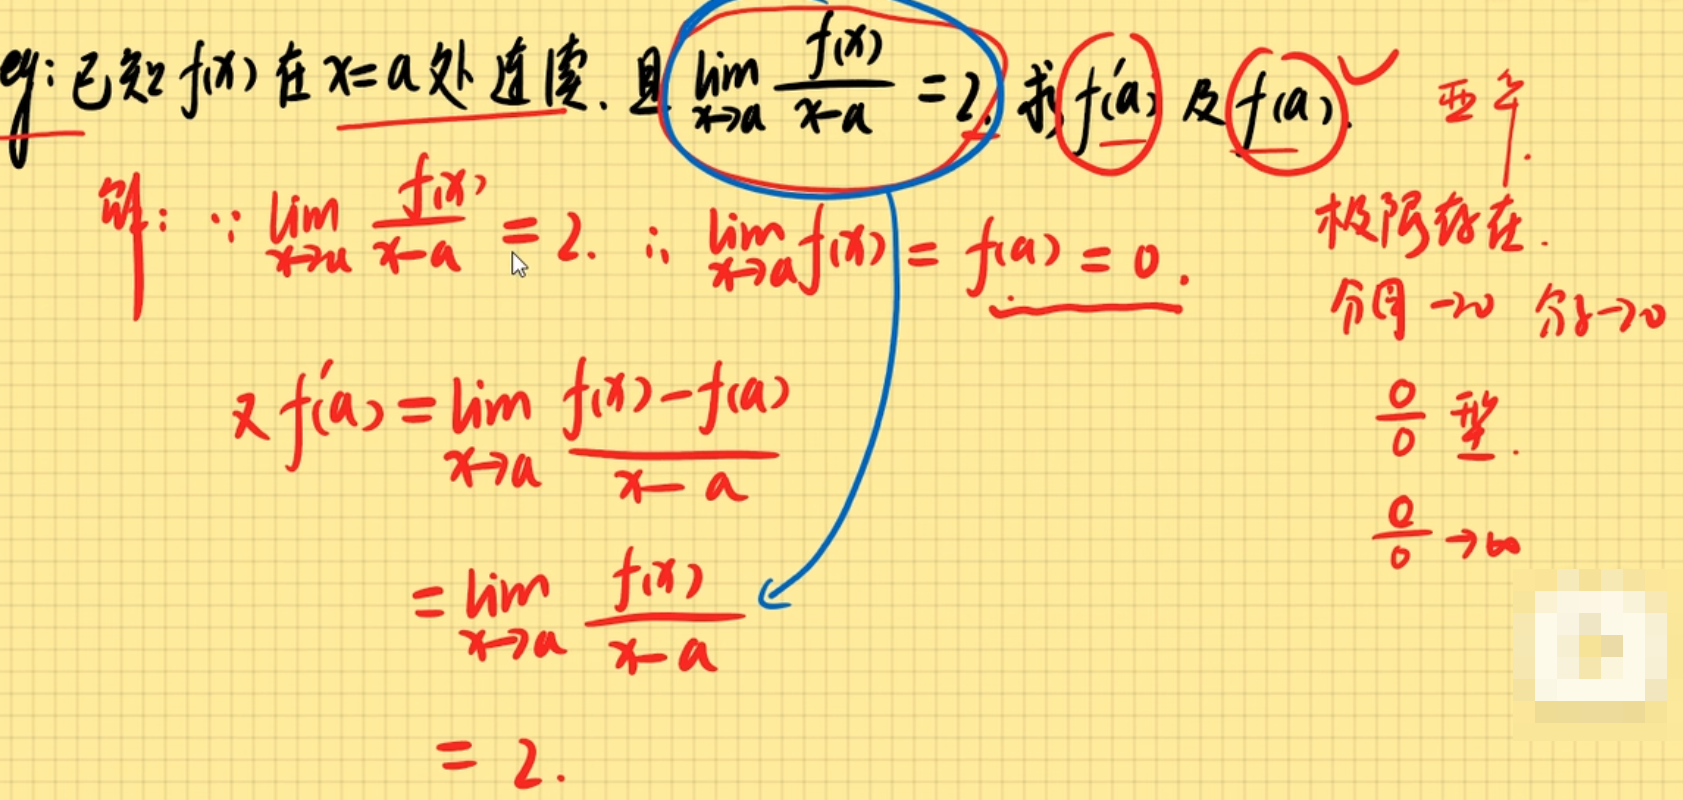 eg: 已知 f(x) 在 x=a 处连续. 且 lim x→a f(x)/(x-a) = 2. 求 f'(a) 及 f(a).
解: ∵ lim x→a f(x)/(x-a) = 2. ∴ lim x→a f(x) = f(a) = 0.
又 f'(a) = lim x→a (f(x)-f(a))/(x-a)
= lim x→a f(x)/(x-a)
= 2.
极限存在.
分母→0 分子→0
0/0 型.
0/0 →∞